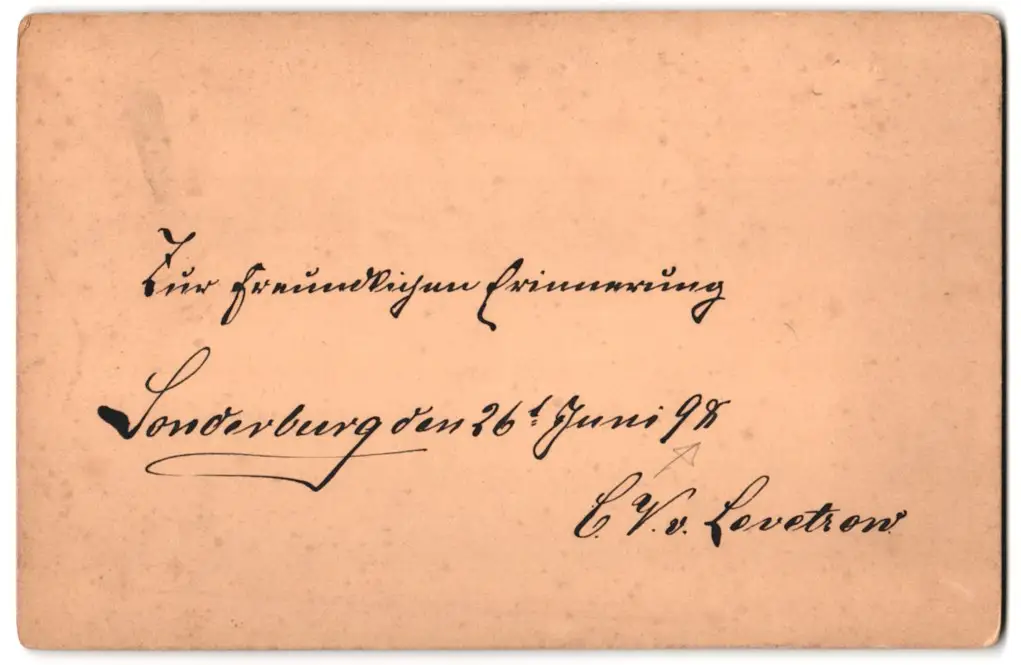 Zur freundlichen Erinnerung
Sonderburg den 26t. Juni 98
C. V. v. Levetzow.